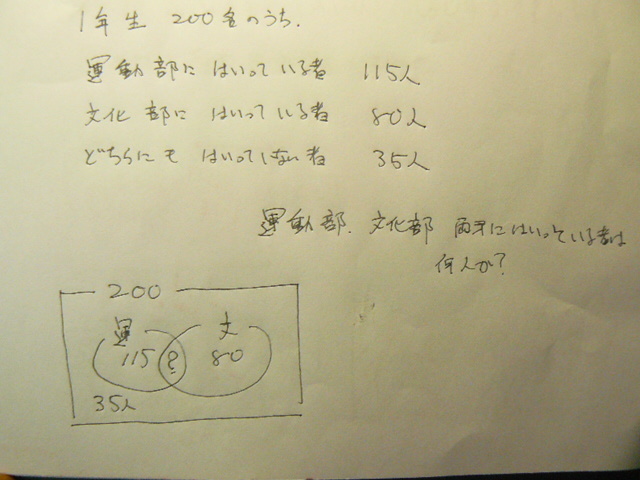 1年生 200名のうち.
運動部に はいっている者 115人
文化部に はいっている者 80人
どちらにも はいっていない者 35人
運動部. 文化部 両方にはいっている者は
何人か?
200
運 文
115 ? 80
35人